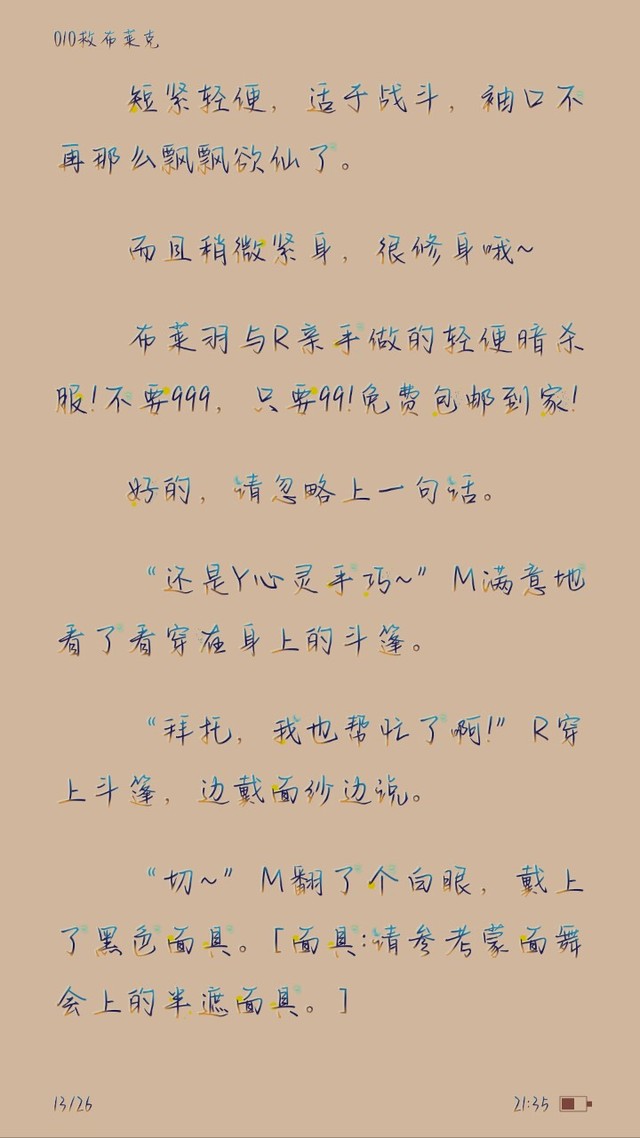 010救布莱克
短紧轻便，适于战斗，袖口不
再那么飘飘欲仙了。
而且稍微紧身，很修身哦~
布莱羽与R亲手做的轻便暗杀
服!不要999，只要99!免费包邮到家!
好的，请忽略上一句话。
“还是Y心灵手巧~”M满意地
看了看穿在身上的斗篷。
“拜托，我也帮忙了啊!”R穿
上斗篷，边戴面纱边说。
“切~”M翻了个白眼，戴上
了黑色面具。[面具:请参考蒙面舞
会上的半遮面具。]
13/26
21:35